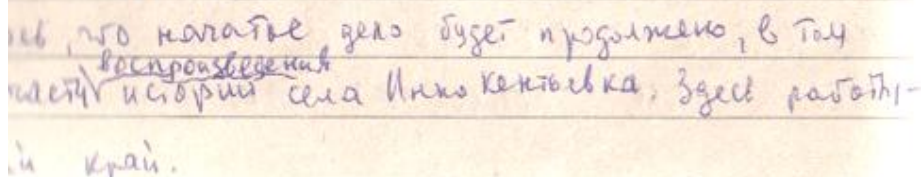 что начатое дело будет продолжено, в том
воспроизведения
части истории села Иннокентьевка. Здесь работы-
й край.